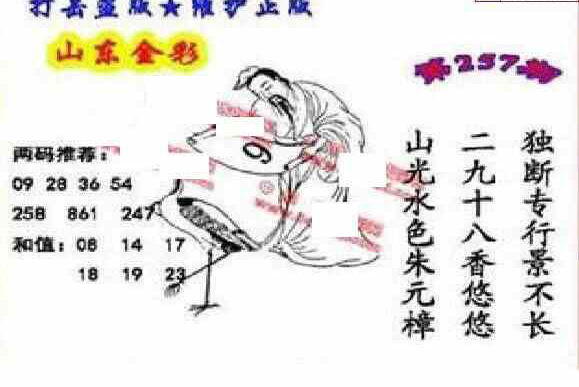 打击盗版★维护正版
山东金彩
第257期
独断专行景不长
二九十八香悠悠
山光水色朱元樟
两码推荐：
09 28 36 54
258 861 247
和值：08 14 17
18 19 23
9